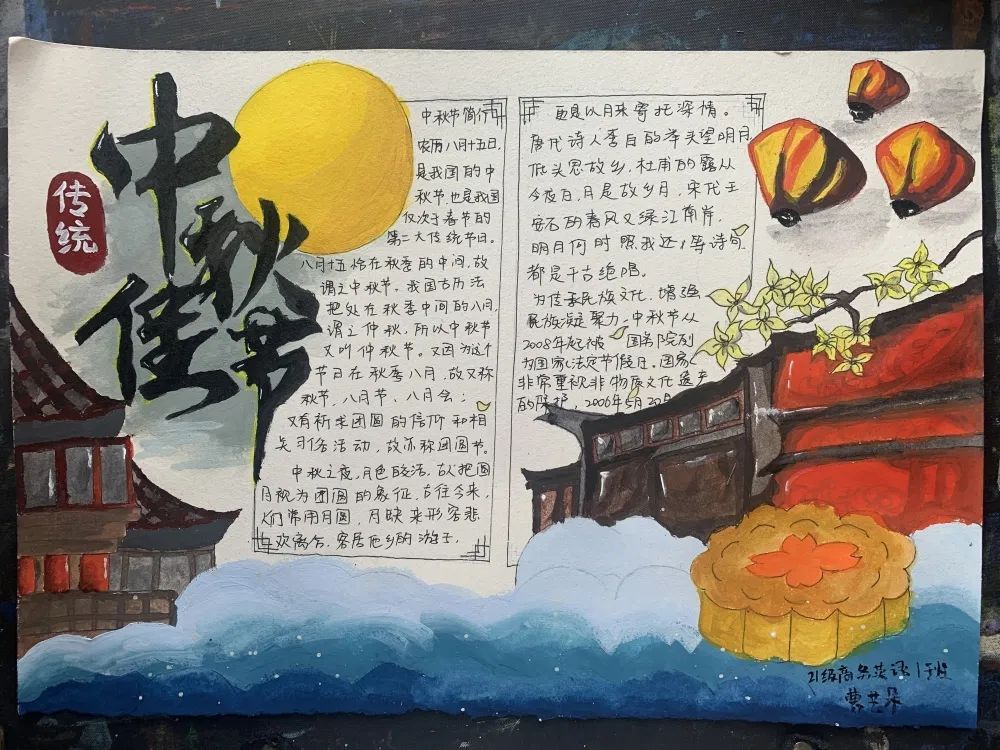 中秋佳节
传统
中秋节简介
农历八月十五日,
是我国的中
秋节也是我国
仅次于春节的
第二大传统节日。
八月十五恰在秋季的中间,故
谓之中秋节。我国古历法
把处在秋季中间的八月,
谓之仲秋,所以中秋节
又叫仲秋节。又因为这个
节日在秋季八月,故又称
秋节、八月节、八月会;
又有祈求团圆的信仰和相
关习俗活动,故亦称团圆节。
中秋之夜,月色皎洁,古人把圆
月视为团圆的象征,古往今来,
人们常用月圆、月缺来形容悲
欢离合,客居他乡的游子,
更是以月来寄托深情。
唐代诗人李白的举头望明月,
低头思故乡,杜甫的露从
今夜白,月是故乡月,宋代王
安石的春风又绿江南岸,
明月何时照我还,等诗句
都是千古绝唱。
为传承民族文化,增强
民族凝聚力,中秋节从
2008年起被国务院列
为国家法定节假日。国家
非常重视非物质文化遗产
的保护,2006年5月20日
21级商务英语1班
曹艺朵